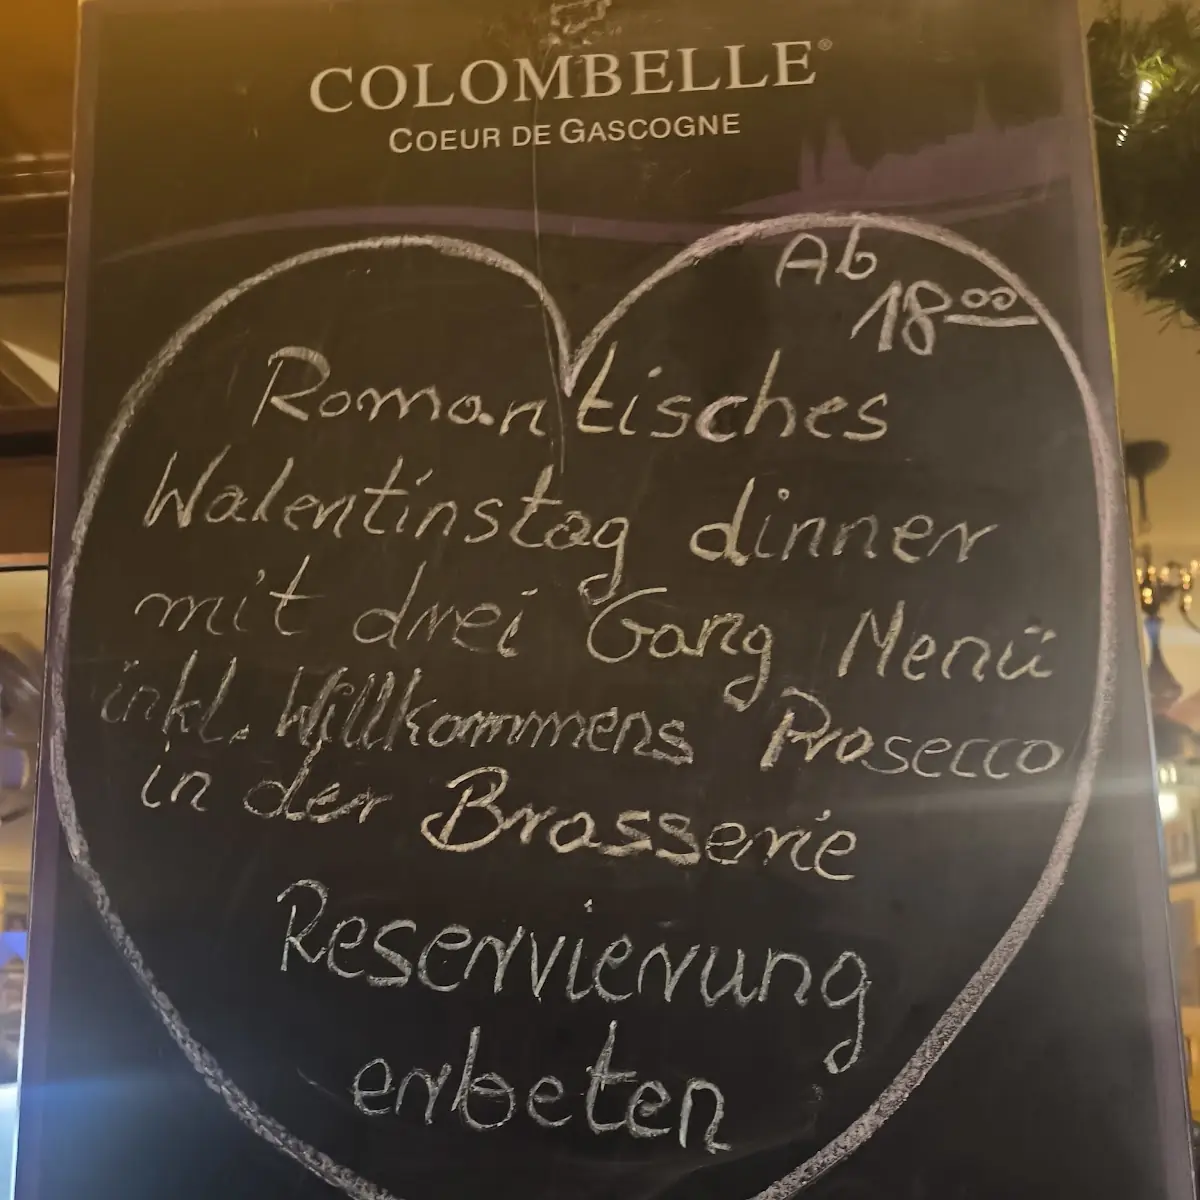 COLOMBELLE®
COEUR DE GASCOGNE
Ab
18 00
Romantisches
Walentinstag dinner
mit drei Gang Menü
inkl. Willkommens Prosecco
in der Brasserie
Reservierung
erbeten